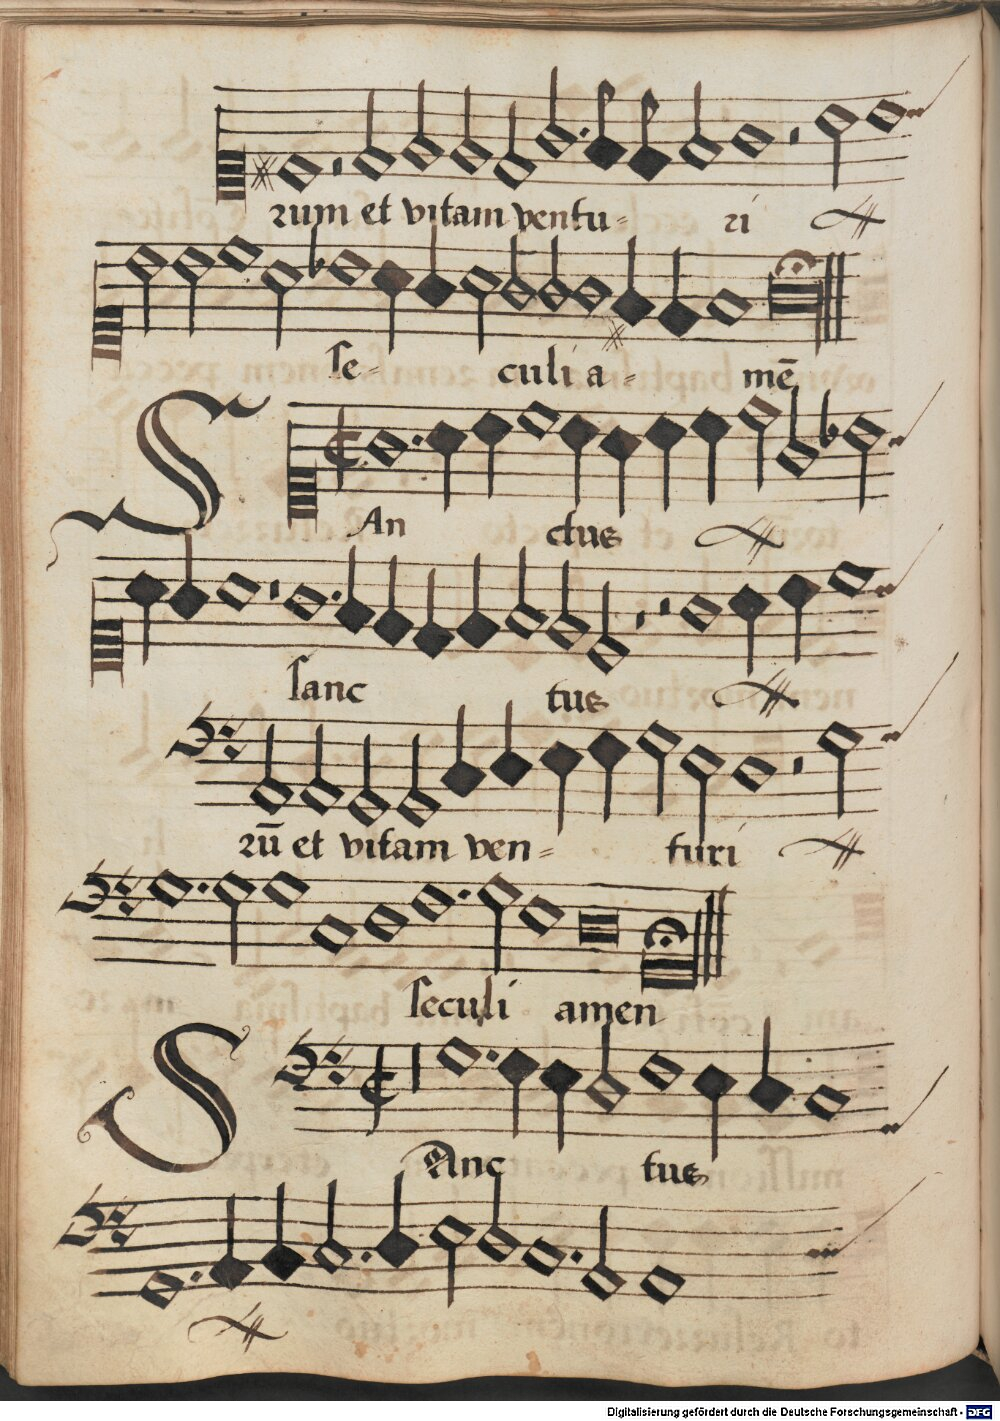 rum et vitam ventu- ri
se- culi a- mē
SAn ctus
sanc tus
rū et vitam ven- turi
seculi amen
SAnc tus
Digitalisierung gefördert durch die Deutsche Forschungsgemeinschaft - DFG